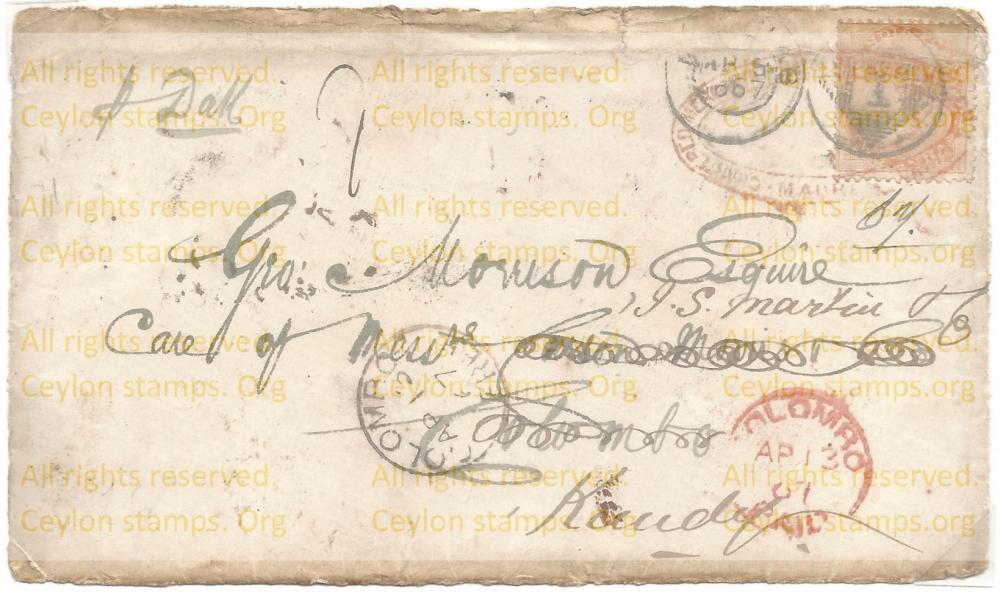 All rights reserved. All rights reserved. All rights reserved.
Ceylon stamps. Org Ceylon stamps. Org Ceylon stamps. Org
Dak
67
1
MAURI
All rights reserved. All rights reserved. All rights reserved.
Ceylon stamps. Org Ceylon stamps. Org Ceylon stamps. Org
Geo. Morrison Esquire
J. S. Martin &
Care of Mess
All rights reserved. All rights reserved. All rights reserved.
Ceylon stamps. Org Ceylon stamps. Org Ceylon stamps. Org
COLOMBO
Colombo
COLOMBO
AP 13
67
PAID
All rights reserved. All rights reserved. All rights reserved.
Ceylon stamps. Org Ceylon stamps. Org Ceylon stamps. Org
Kandy